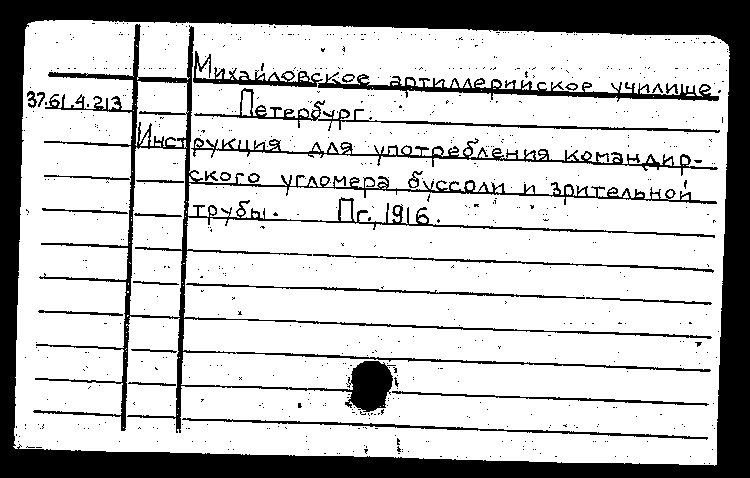 Михайловское артиллерийское училище.
37.61.4.213
Петербург.
Инструкция для употребления командир-
ского угломера, буссоли и зрительной
трубы. Пг., 1916.